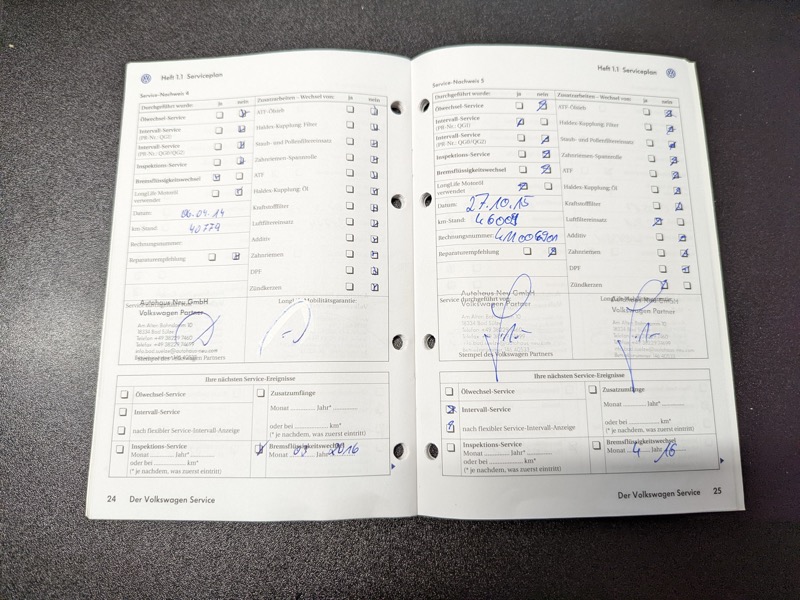 Heft 1.1 Serviceplan
Service-Nachweis 4
Durchgeführt wurde: ja nein
Ölwechsel-Service
Intervall-Service
(PR-Nr.: QG1)
Intervall-Service
(PR-Nr.: QG0/QG2)
Inspektions-Service
Bremsflüssigkeitswechsel
LongLife Motoröl
verwendet
Datum: 06.04.14
km-Stand: 40779
Rechnungsnummer:
Reparaturempfehlung
Zusatzarbeiten – Wechsel von: ja nein
ATF-Ölsieb
Haldex-Kupplung: Filter
Staub- und Pollenfiltereinsatz
Zahnriemen-Spannrolle
ATF
Haldex-Kupplung: Öl
Kraftstofffilter
Luftfiltereinsatz
Additiv
Zahnriemen
DPF
Zündkerzen
Service durchgeführt von:
LongLife Mobilitätsgarantie:
Autohaus Neu GmbH
Volkswagen Partner
Stempel des Volkswagen Partners
Ihre nächsten Service-Ereignisse
Ölwechsel-Service
Intervall-Service
nach flexibler Service-Intervall-Anzeige
Inspektions-Service
Monat Jahr*
oder bei km*
(* je nachdem, was zuerst eintritt)
Zusatzumfänge
Monat Jahr*
oder bei km*
(* je nachdem, was zuerst eintritt)
Bremsflüssigkeitswechsel
Monat 03 2016
24 Der Volkswagen Service
Heft 1.1 Serviceplan
Service-Nachweis 5
Durchgeführt wurde: ja nein
Ölwechsel-Service
Intervall-Service
(PR-Nr.: QG1)
Intervall-Service
(PR-Nr.: QG0/QG2)
Inspektions-Service
Bremsflüssigkeitswechsel
LongLife Motoröl
verwendet
Datum: 27.10.15
km-Stand: 46009
Rechnungsnummer:
Reparaturempfehlung
Zusatzarbeiten – Wechsel von: ja nein
ATF-Ölsieb
Haldex-Kupplung: Filter
Staub- und Pollenfiltereinsatz
Zahnriemen-Spannrolle
ATF
Haldex-Kupplung: Öl
Kraftstofffilter
Luftfiltereinsatz
Additiv
Zahnriemen
DPF
Zündkerzen
Service durchgeführt von:
Autohaus Neu GmbH
Volkswagen Partner
Stempel des Volkswagen Partners
Ihre nächsten Service-Ereignisse
Ölwechsel-Service
Intervall-Service
nach flexibler Service-Intervall-Anzeige
Inspektions-Service
Monat Jahr*
oder bei km*
(* je nachdem, was zuerst eintritt)
Zusatzumfänge
Monat Jahr*
oder bei km*
(* je nachdem, was zuerst eintritt)
Bremsflüssigkeitswechsel
Monat 4 16
Der Volkswagen Service 25